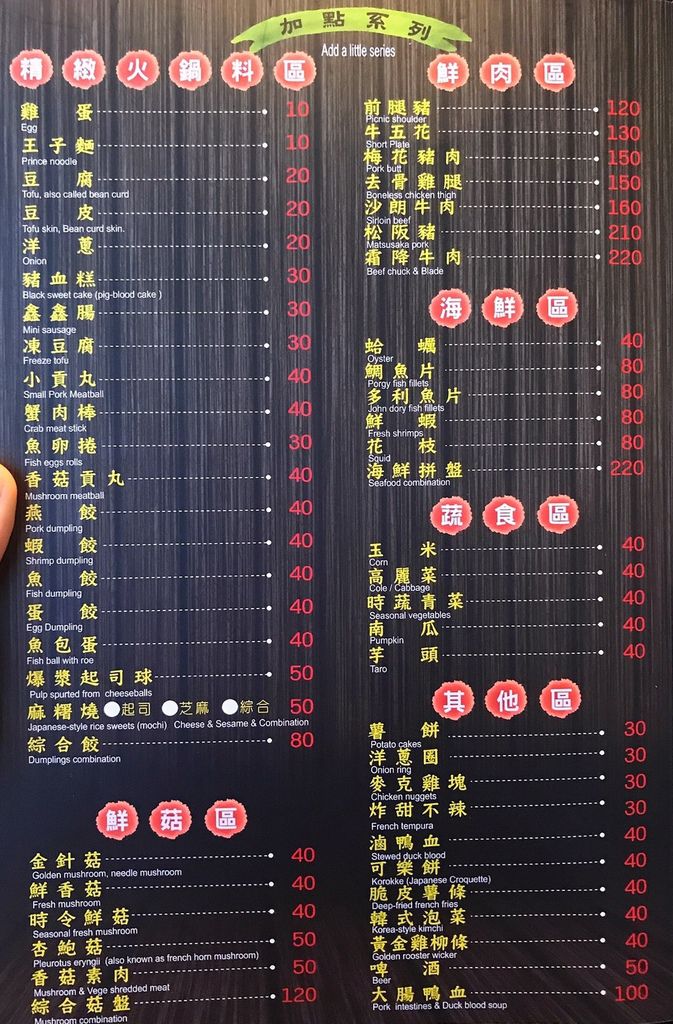 加點系列
Add a little series
精緻火鍋料區
雞蛋 10
Egg
王子麵 10
Prince noodle
豆腐 20
Tofu, also called bean curd
豆皮 20
Tofu skin, Bean curd skin.
洋蔥 20
Onion
豬血糕 30
Black sweet cake (pig-blood cake )
鑫鑫腸 30
Mini sausage
凍豆腐 30
Freeze tofu
小貢丸 40
Small Pork Meatball
蟹肉棒 40
Crab meat stick
魚卵捲 30
Fish eggs rolls
香菇貢丸 40
Mushroom meatball
燕餃 40
Pork dumpling
蝦餃 40
Shrimp dumpling
魚餃 40
Fish dumpling
蛋餃 40
Egg Dumpling
魚包蛋 40
Fish ball with roe
爆漿起司球 50
Pulp spurted from cheeseballs
麻糬燒 起司 芝麻 綜合 50
Japanese-style rice sweets (mochi) Cheese & Sesame & Combination
綜合餃 80
Dumplings combination
鮮菇區
金針菇 40
Golden mushroom, needle mushroom
鮮香菇 40
Fresh mushroom
時令鮮菇 40
Seasonal fresh mushroom
杏鮑菇 50
Pleurotus eryngii (also known as french horn mushroom)
香菇素肉 50
Mushroom & Vege shredded meat
綜合菇盤 120
Mushroom combination
鮮肉區
前腿豬 120
Picnic shoulder
牛五花 130
Short Plate
梅花豬肉 150
Pork butt
去骨雞腿 150
Boneless chicken thigh
沙朗牛肉 160
Sirloin beef
松阪豬 210
Matsusaka pork
霜降牛肉 220
Beef chuck & Blade
海鮮區
蛤蠣 40
Oyster
鯛魚片 80
Porgy fish fillets
多利魚片 80
John dory fish fillets
鮮蝦 80
Fresh shrimps
花枝 80
Squid
海鮮拼盤 220
Seafood combination
蔬食區
玉米 40
Corn
高麗菜 40
Cole / Cabbage
時蔬青菜 40
Seasonal vegetables
南瓜 40
Pumpkin
芋頭 40
Taro
其他區
薯餅 30
Potato cakes
洋蔥圈 30
Onion ring
麥克雞塊 30
Chicken nuggets
炸甜不辣 30
French tempura
滷鴨血 40
Stewed duck blood
可樂餅 40
Korokke (Japanese Croquette)
脆皮薯條 40
Deep-fried french fries
韓式泡菜 40
Korea-style kimchi
黃金雞柳條 40
Golden rooster wicker
啤酒 50
Beer
大腸鴨血 100
Pork intestines & Duck blood soup